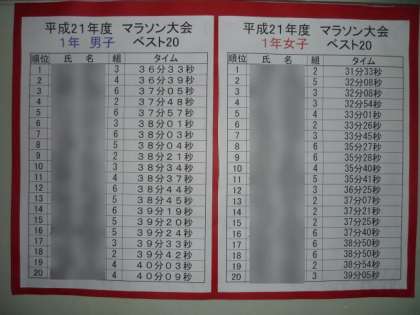 平成21年度 マラソン大会
1年 男子 ベスト20
順位 氏 名 組 タイム
1 3 36分33秒
2 4 36分39秒
3 6 37分05秒
4 2 37分48秒
5 6 37分57秒
6 3 38分01秒
7 6 38分03秒
8 6 38分04秒
9 2 38分21秒
10 3 38分34秒
11 4 38分37秒
12 6 38分44秒
13 5 38分45秒
14 5 39分19秒
15 5 39分20秒
16 5 39分24秒
17 3 39分33秒
18 2 39分42秒
19 4 40分03秒
20 4 40分09秒
平成21年度 マラソン大会
1年女子 ベスト20
順位 氏 名 組 タイム
1 2 31分33秒
2 5 32分08秒
3 3 32分08秒
4 3 32分54秒
5 4 33分01秒
6 2 33分26秒
7 6 33分45秒
8 6 35分27秒
9 6 35分28秒
10 4 35分40秒
11 5 35分41秒
12 3 36分25秒
13 2 37分07秒
14 2 37分21秒
15 2 37分25秒
16 6 37分40秒
17 6 38分50秒
18 6 38分50秒
19 2 38分54秒
20 3 39分05秒